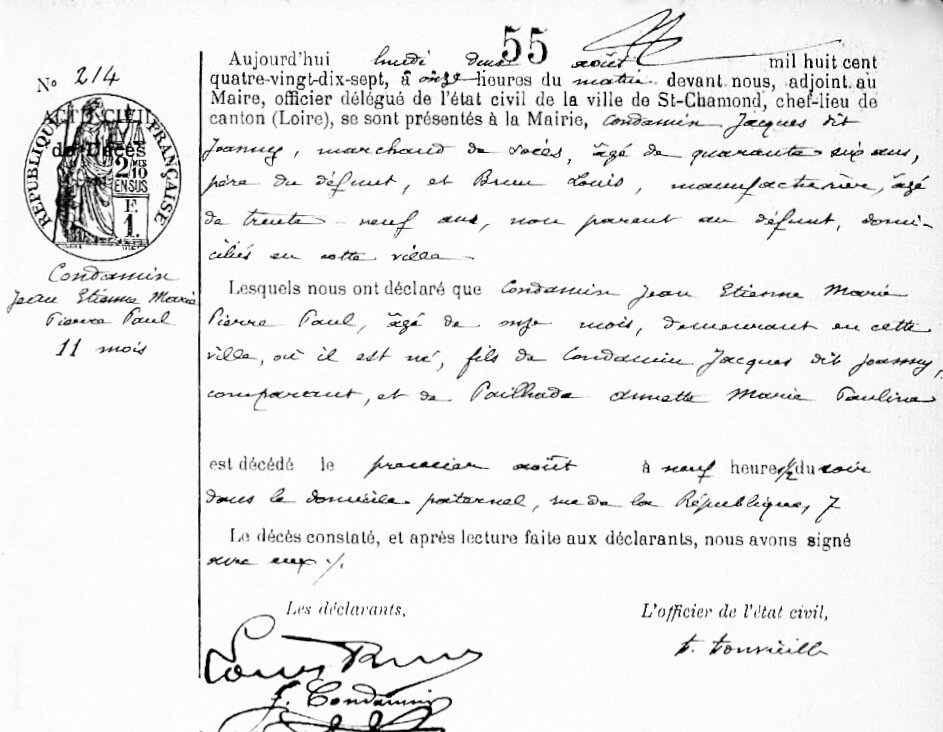 55
Aujourd'hui lundi deux août mil huit cent
quatre-vingt-dix-sept, à onze heures du matin devant nous, adjoint au
Maire, officier délégué de l'état civil de la ville de St-Chamond, chef-lieu de
canton (Loire), se sont présentés à la Mairie, Condamin Jacques dit
Joanny, marchand de soies, âgé de quarante six ans,
père du défunt, et Brun Louis, manufacturier, âgé
de trente-neuf ans, non parent au défunt, domi-
ciliés en cette ville
No 214
ACTE CIVIL
de Décès
RÉPUBLIQUE FRANÇAISE
2/10
EN SUS
1.
Condamin
Jean Etienne Marie
Pierre Paul
11 mois
Lesquels nous ont déclaré que Condamin Jean Etienne Marie
Pierre Paul, âgé de onze mois, demeurant en cette
ville, où il est né, fils de Condamin Jacques dit Joanny,
comparant, et de Pailhade Annette Marie Pauline
est décédé le premier août à neuf heures 1/2 du soir
dans le domicile paternel, rue de la République, 7
Le décès constaté, et après lecture faite aux déclarants, nous avons signé
avec eux ./.
Les déclarants,
L'officier de l'état civil,
Louis Brun
J. Condamin